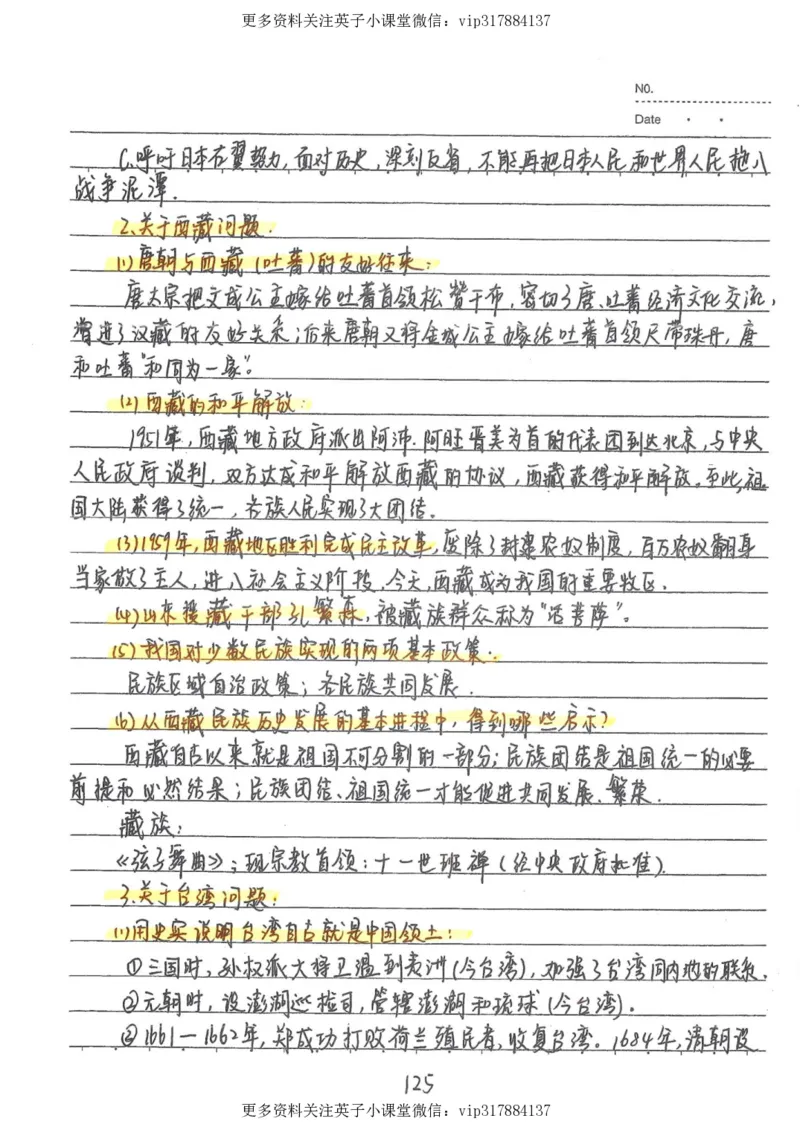 更多资料关注英子小课堂微信：vip317884137
NO.
Date
C.呼吁日本右翼势力，面对历史，深刻反省，不能再把日本人民和世界人民拖入
战争泥潭.
2.关于西藏问题.
(1)唐朝与西藏（吐蕃）的友好往来：
唐太宗把文成公主嫁给吐蕃首领松赞干布，密切了唐、吐蕃经济文化交流，
增进了汉藏的友好关系；后来唐朝又将金城公主嫁给吐蕃首领尺带珠丹，唐
和吐蕃“和同为一家”。
(2)西藏的和平解放：
1951年，西藏地方政府派出阿沛.阿旺晋美为首的代表团到达北京，与中央
人民政府谈判，双方达成和平解放西藏的协议，西藏获得和平解放。至此，祖
国大陆获得了统一，各族人民实现了大团结。
(3)1959年，西藏地区胜利完成民主改革，废除了封建农奴制度，百万农奴翻身
当家做了主人，进入社会主义阶段，今天，西藏成为我国的重要牧区.
(4)山东援藏干部孔繁森，被藏族群众称为“活菩萨”。
(5)我国对少数民族实现的两项基本政策.
民族区域自治政策；各民族共同发展.
(6)从西藏民族历史发展的基本进程中，得到哪些启示？
西藏自古以来就是祖国不可分割的一部分；民族团结是祖国统一的必要
前提和必然结果；民族团结、祖国统一才能促进共同发展、繁荣.
藏族：
《弦子舞曲》；现宗教首领：十一世班禅（经中央政府批准）.
3.关于台湾问题：
(1)用史实说明台湾自古就是中国领土：
①三国时，孙权派大将卫温到夷洲（今台湾），加强了台湾同内地的联系.
②元朝时，设澎湖巡检司，管辖澎湖和琉球（今台湾）.
③1661—1662年，郑成功打败荷兰殖民者，收复台湾。1684年，清朝设
125
更多资料关注英子小课堂微信：vip317884137